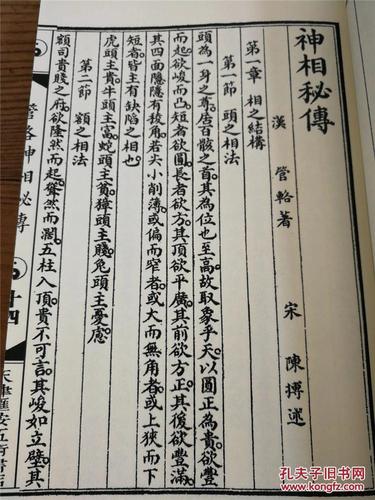 神相秘傳
漢　管輅著　　宋　陳摶述
第一章　相之結構
第一節　頭之相法
頭為一身之尊。居百骸之首。其為位也至高。故取象乎天。以圓正為貴。欲豐
而起。欲峻而凸。短者欲圓。長者欲方。其頂欲平廣。其前欲方正。其後欲豐滿。
其四面隱隱有稜角。若尖小削薄。或偏而窄者。或大而無角者。或上狹而下
短者。皆主有缺陷之相也。
虎頭主貴。牛頭主富。蛇頭主貧。獐頭主賤。兔頭主憂慮
第二節　額之相法
額司貴賤之府。欲隆然而起。聳然而濶。五柱入頂。貴不可言。其峻如立壁。其
管輅神相秘傳
十四
天津匯安五術書店
孔夫子旧书网
www.kongfz.com